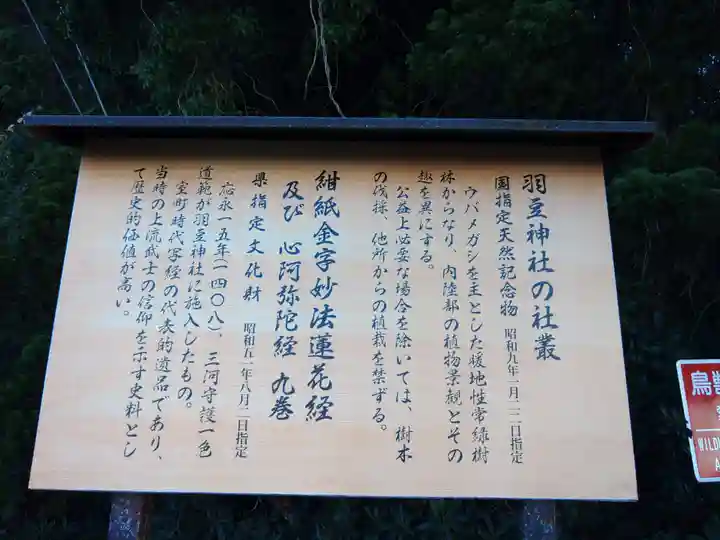 羽豆神社の社叢
国指定天然記念物 昭和九年一月二二日指定
ウバメガシを主とした暖地性常緑樹
林からなり、内陸部の植物景観とその
趣を異にする。
公益上必要な場合を除いては、樹木
の伐採、他所からの植栽を禁ずる。
紺紙金字妙法蓮花経
及び 心阿弥陀経 九巻
県指定文化財 昭和五一年八月二日指定
応永一五年(一四〇八)、三河守護一色
道範が羽豆神社に施入したもの。
室町時代写経の代表的遺品であり、
当時の上流武士の信仰を示す史料とし
て歴史的価値が高い。
鳥獣
WILD